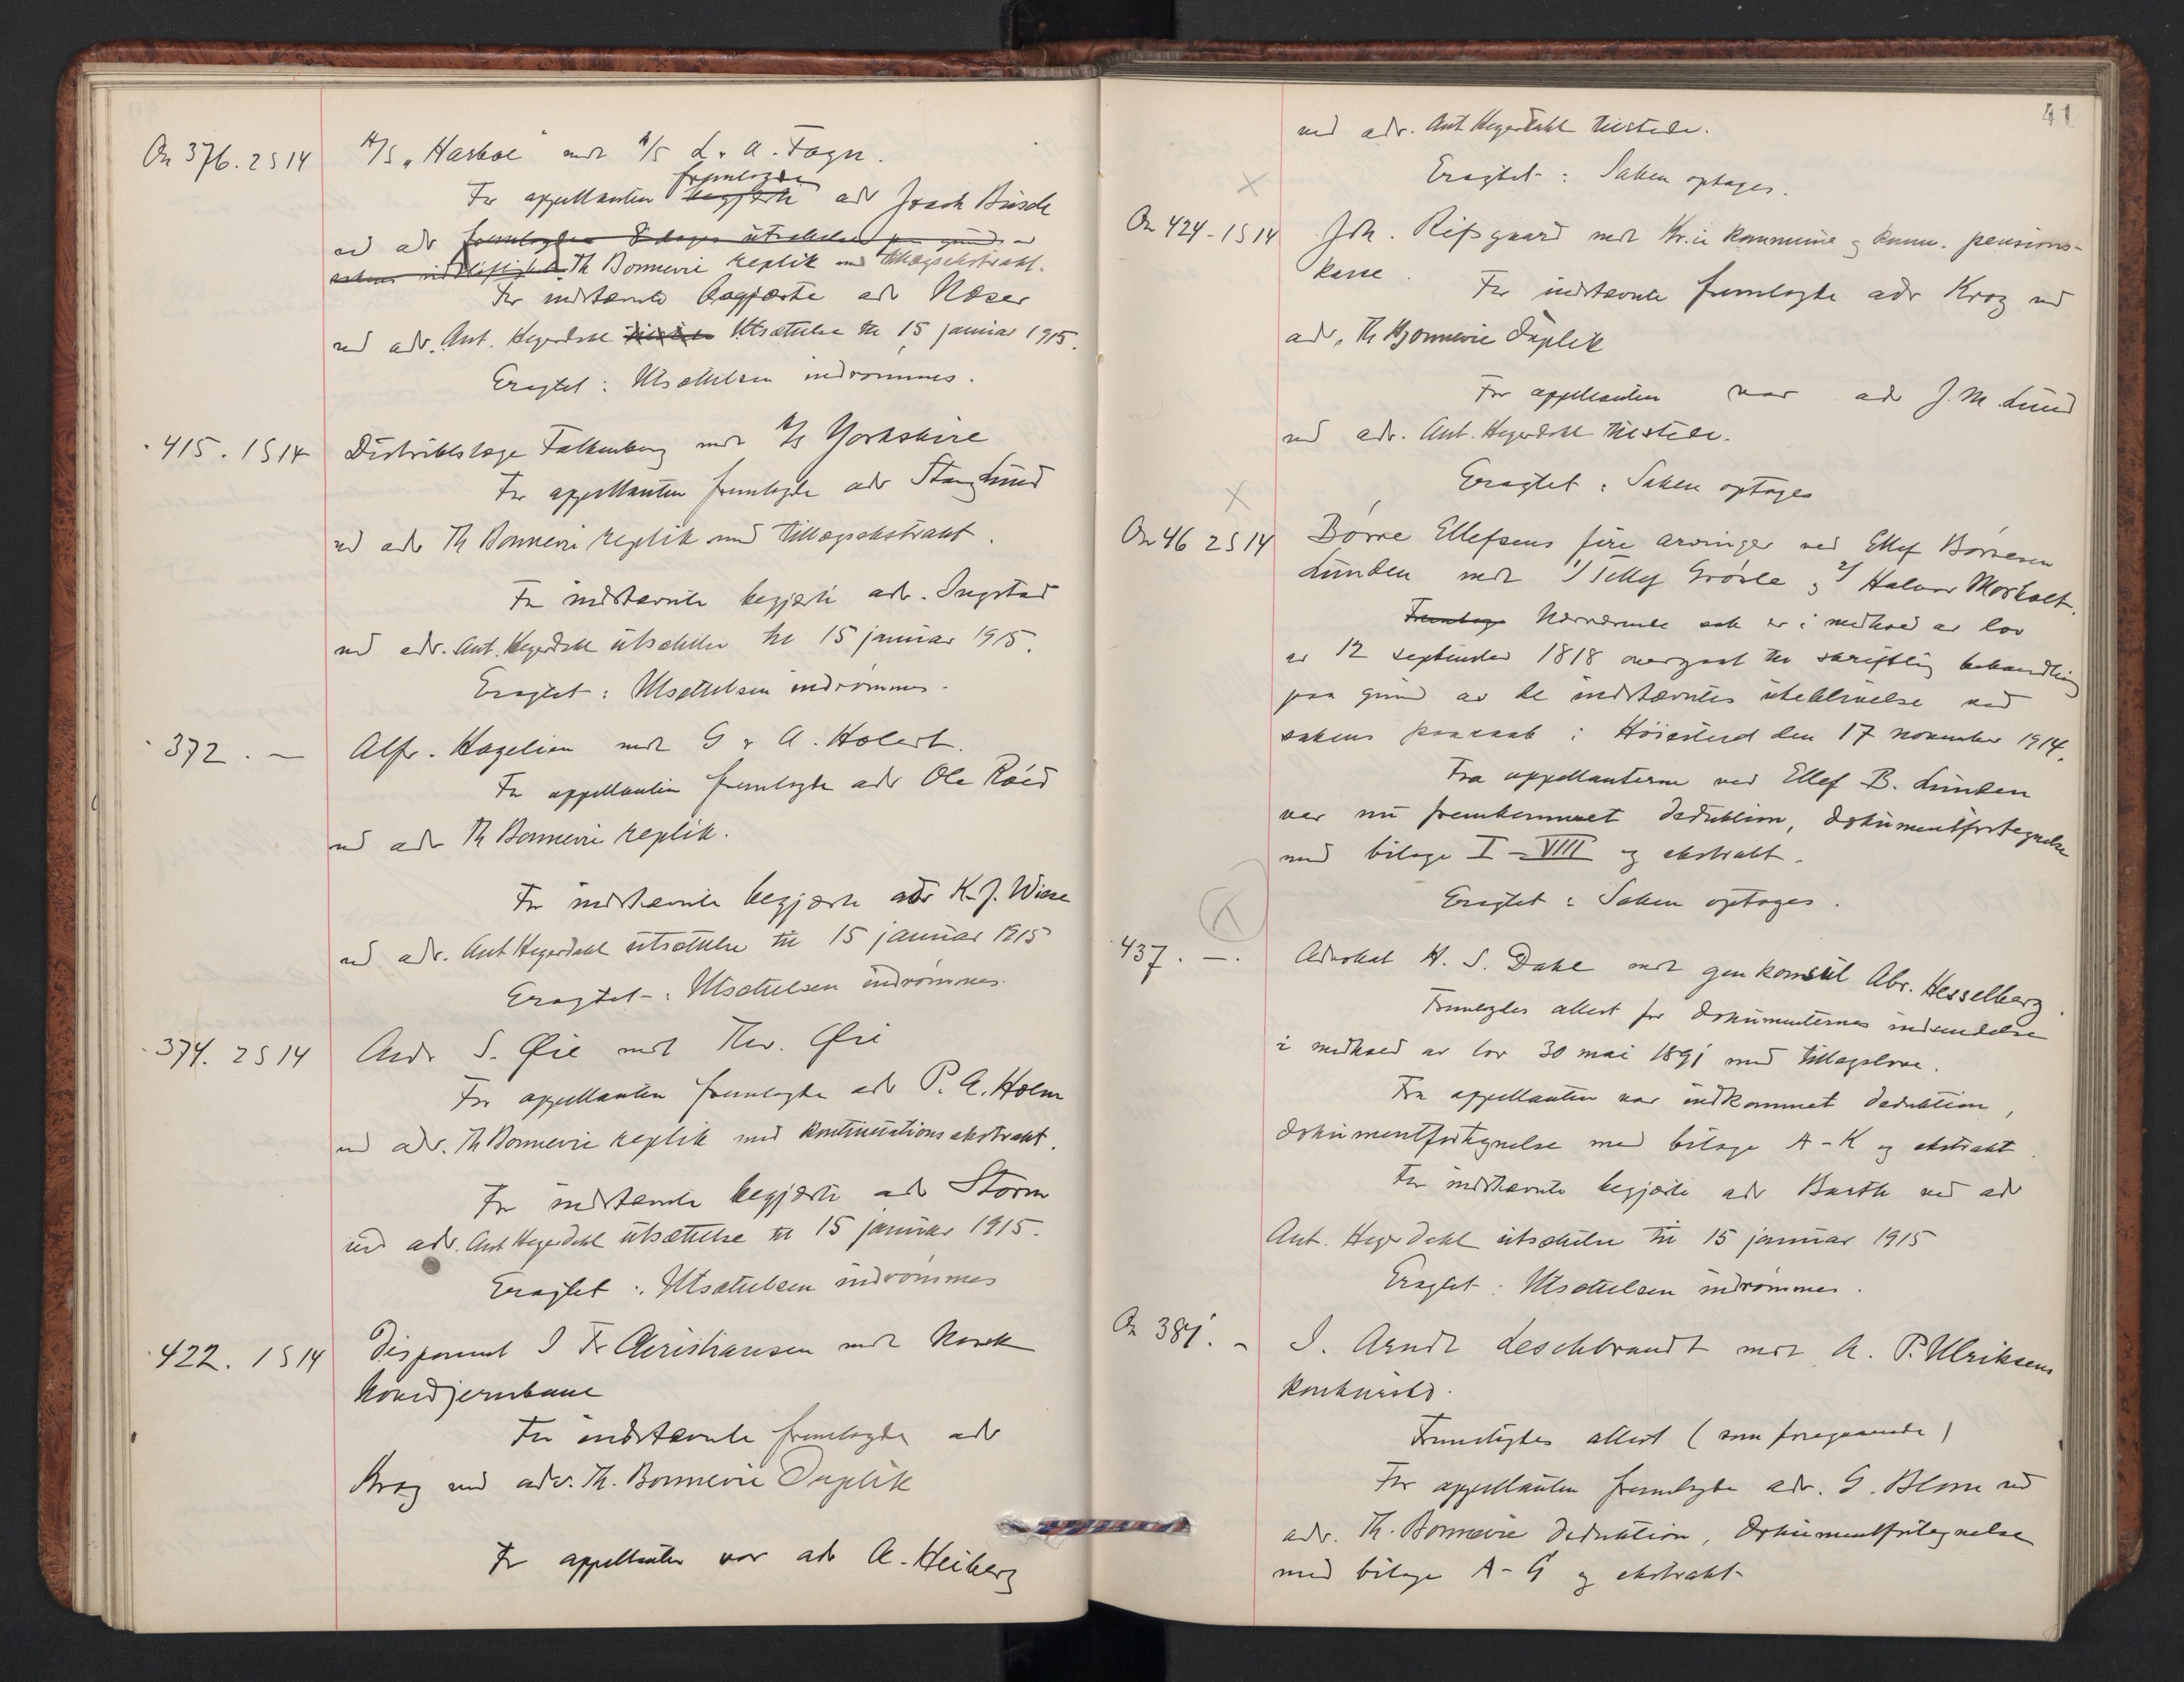 On 376. 2 S 14
A/S „Harboe" mot A/S L. A. Fagn.
fremlagde
For appellanten begjærte adv Joach Busch
ved adv fremlagde 8 dages utsættelse paa grund av
sakens vidløftighet Th Bonnevie replik med tillægsekstrakt.
For indstævnte begjærte adv Næser
ved adv. Ant. Hegerdahl utsættelse til 15 januar 1915.
Eragtet: Utsættelsen indrømmes.
415. 1 S 14
Distriktslæge Falkenberg mot A/S Yorkshire
For appellanten fremlagde adv Stang Lund
ved adv Th Bonnevie replik med tillægsekstrakt.
For indstævnte begjærte adv. Ingstad
ved adv. Ant. Hegerdahl utsættelse til 15 januar 1915.
Eragtet: Utsættelsen indrømmes.
372. —
Alfr. Hagelien mot G & A. Holert.
For appellanten fremlagde adv Ole Røed
ved adv Th Bonnevie replik.
For indstævnte begjærte adv K. J. Wiese
ved adv. Ant Hegerdahl utsættelse til 15 januar 1915
Eragtet: Utsættelsen indrømmes.
374. 2 S 14
Andr S. Øie mot Thv. Øie
For appellanten fremlagde adv P. A. Holm
ved adv. Th Bonnevie replik med kontinuationsekstrakt.
For indstævnte begjærte adv Storm
ved adv. Ant Hegerdahl utsættelse til 15 januar 1915.
Eragtet: Utsættelsen indrømmes
422. 1 S 14
Disponent I Fr Christiansen mot Norsk
hovedjernbane
For indstævnte fremlagde adv
Krag ved adv. Th. Bonnevie Duplik
For appellanten var adv A. Heiberg
41
ved adv. Ant Hegerdahl tilstede.
Eragtet: Saken optages.
On 424 - 1 S 14
Joh. Risgaard mot Kr.ia kommune og komm. pensions-
kasse. For indstævnte fremlagde adv Krag ved
adv. Th Bonnevie Duplik
For appellanten var adv J. M. Lund
ved adv. Ant. Hegerdahl tilstede.
Eragtet: Saken optages
On 46 2 S 14
Børre Ellefsens fire arvinger ved Ellef Børresen
Lunden mot 1/ Tellef Grösle og 2/ Halvor Morholt.
Fremlagt Nærværende sak er i medhold av lov
av 12 september 1818 overgaat til skriftlig behandling
paa grund av de indstævntes uteblivelse ved
sakens paaraab i Høiesteret den 17 november 1914.
Fra appellanterne ved Ellef B. Lunden
var nu fremkommet deduktion, dokumentfortegnelse
med bilage I - VIII og ekstrakt.
Eragtet: Saken optages.
437. —.
Advokat H. S. Dahl mot gen konsul Abr. Hesselberg.
Fremlagdes attest for dokumenternes indsendelse
i medhold av lov 30 mai 1891 med tillægslove.
Fra appellanten var indkommet deduktion,
dokumentfortegnelse med bilage A - K og ekstrakt.
For indstævnte begjærte adv Barth ved adv
Ant. Hegerdahl utsættelse til 15 januar 1915
Eragtet: Utsættelsen indrømmes.
On 381. -
I. Arndt Leschbrandt mot A. P. Ulriksens
konkursbo.
Fremlagdes attest (som foregaaende)
For appellanten fremlagde adv. G. Blom ved
adv. Th. Bonnevie deduktion, dokumentfortegnelse
med bilage A - G og ekstrakt